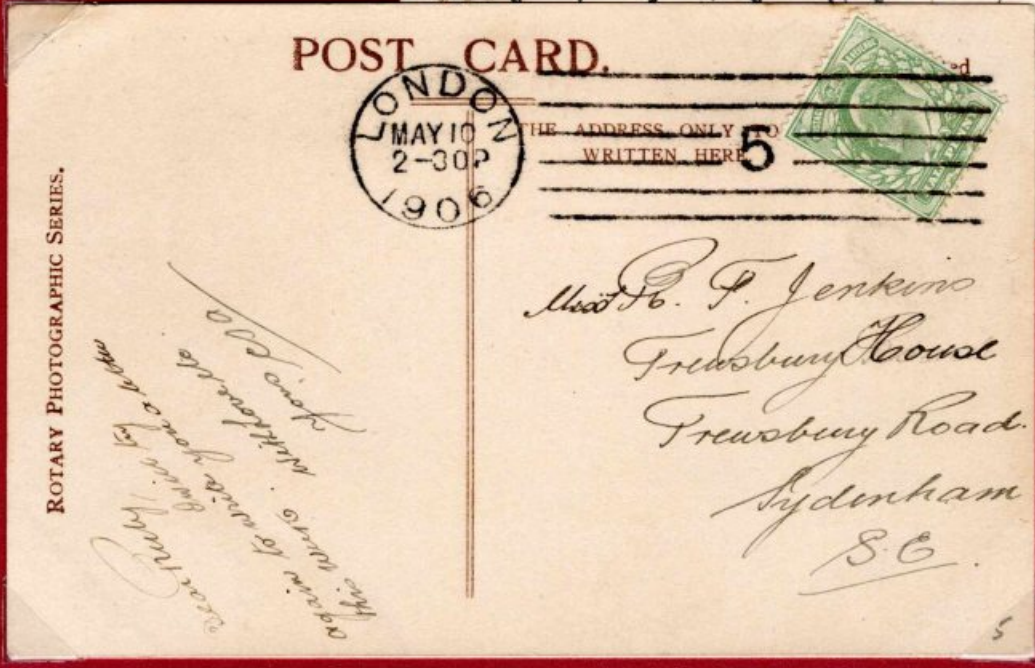 POST CARD.
LONDON
MAY 10
2-30P
1906
THE ADDRESS ONLY TO
WRITTEN HERE
5
ROTARY PHOTOGRAPHIC SERIES.
Miss R. F. Jenkins
Trewsbury House
Trewsbury Road.
Sydenham
S.E
Dear
I will try
again to write you a letter
this week. With love etc
Yours
5